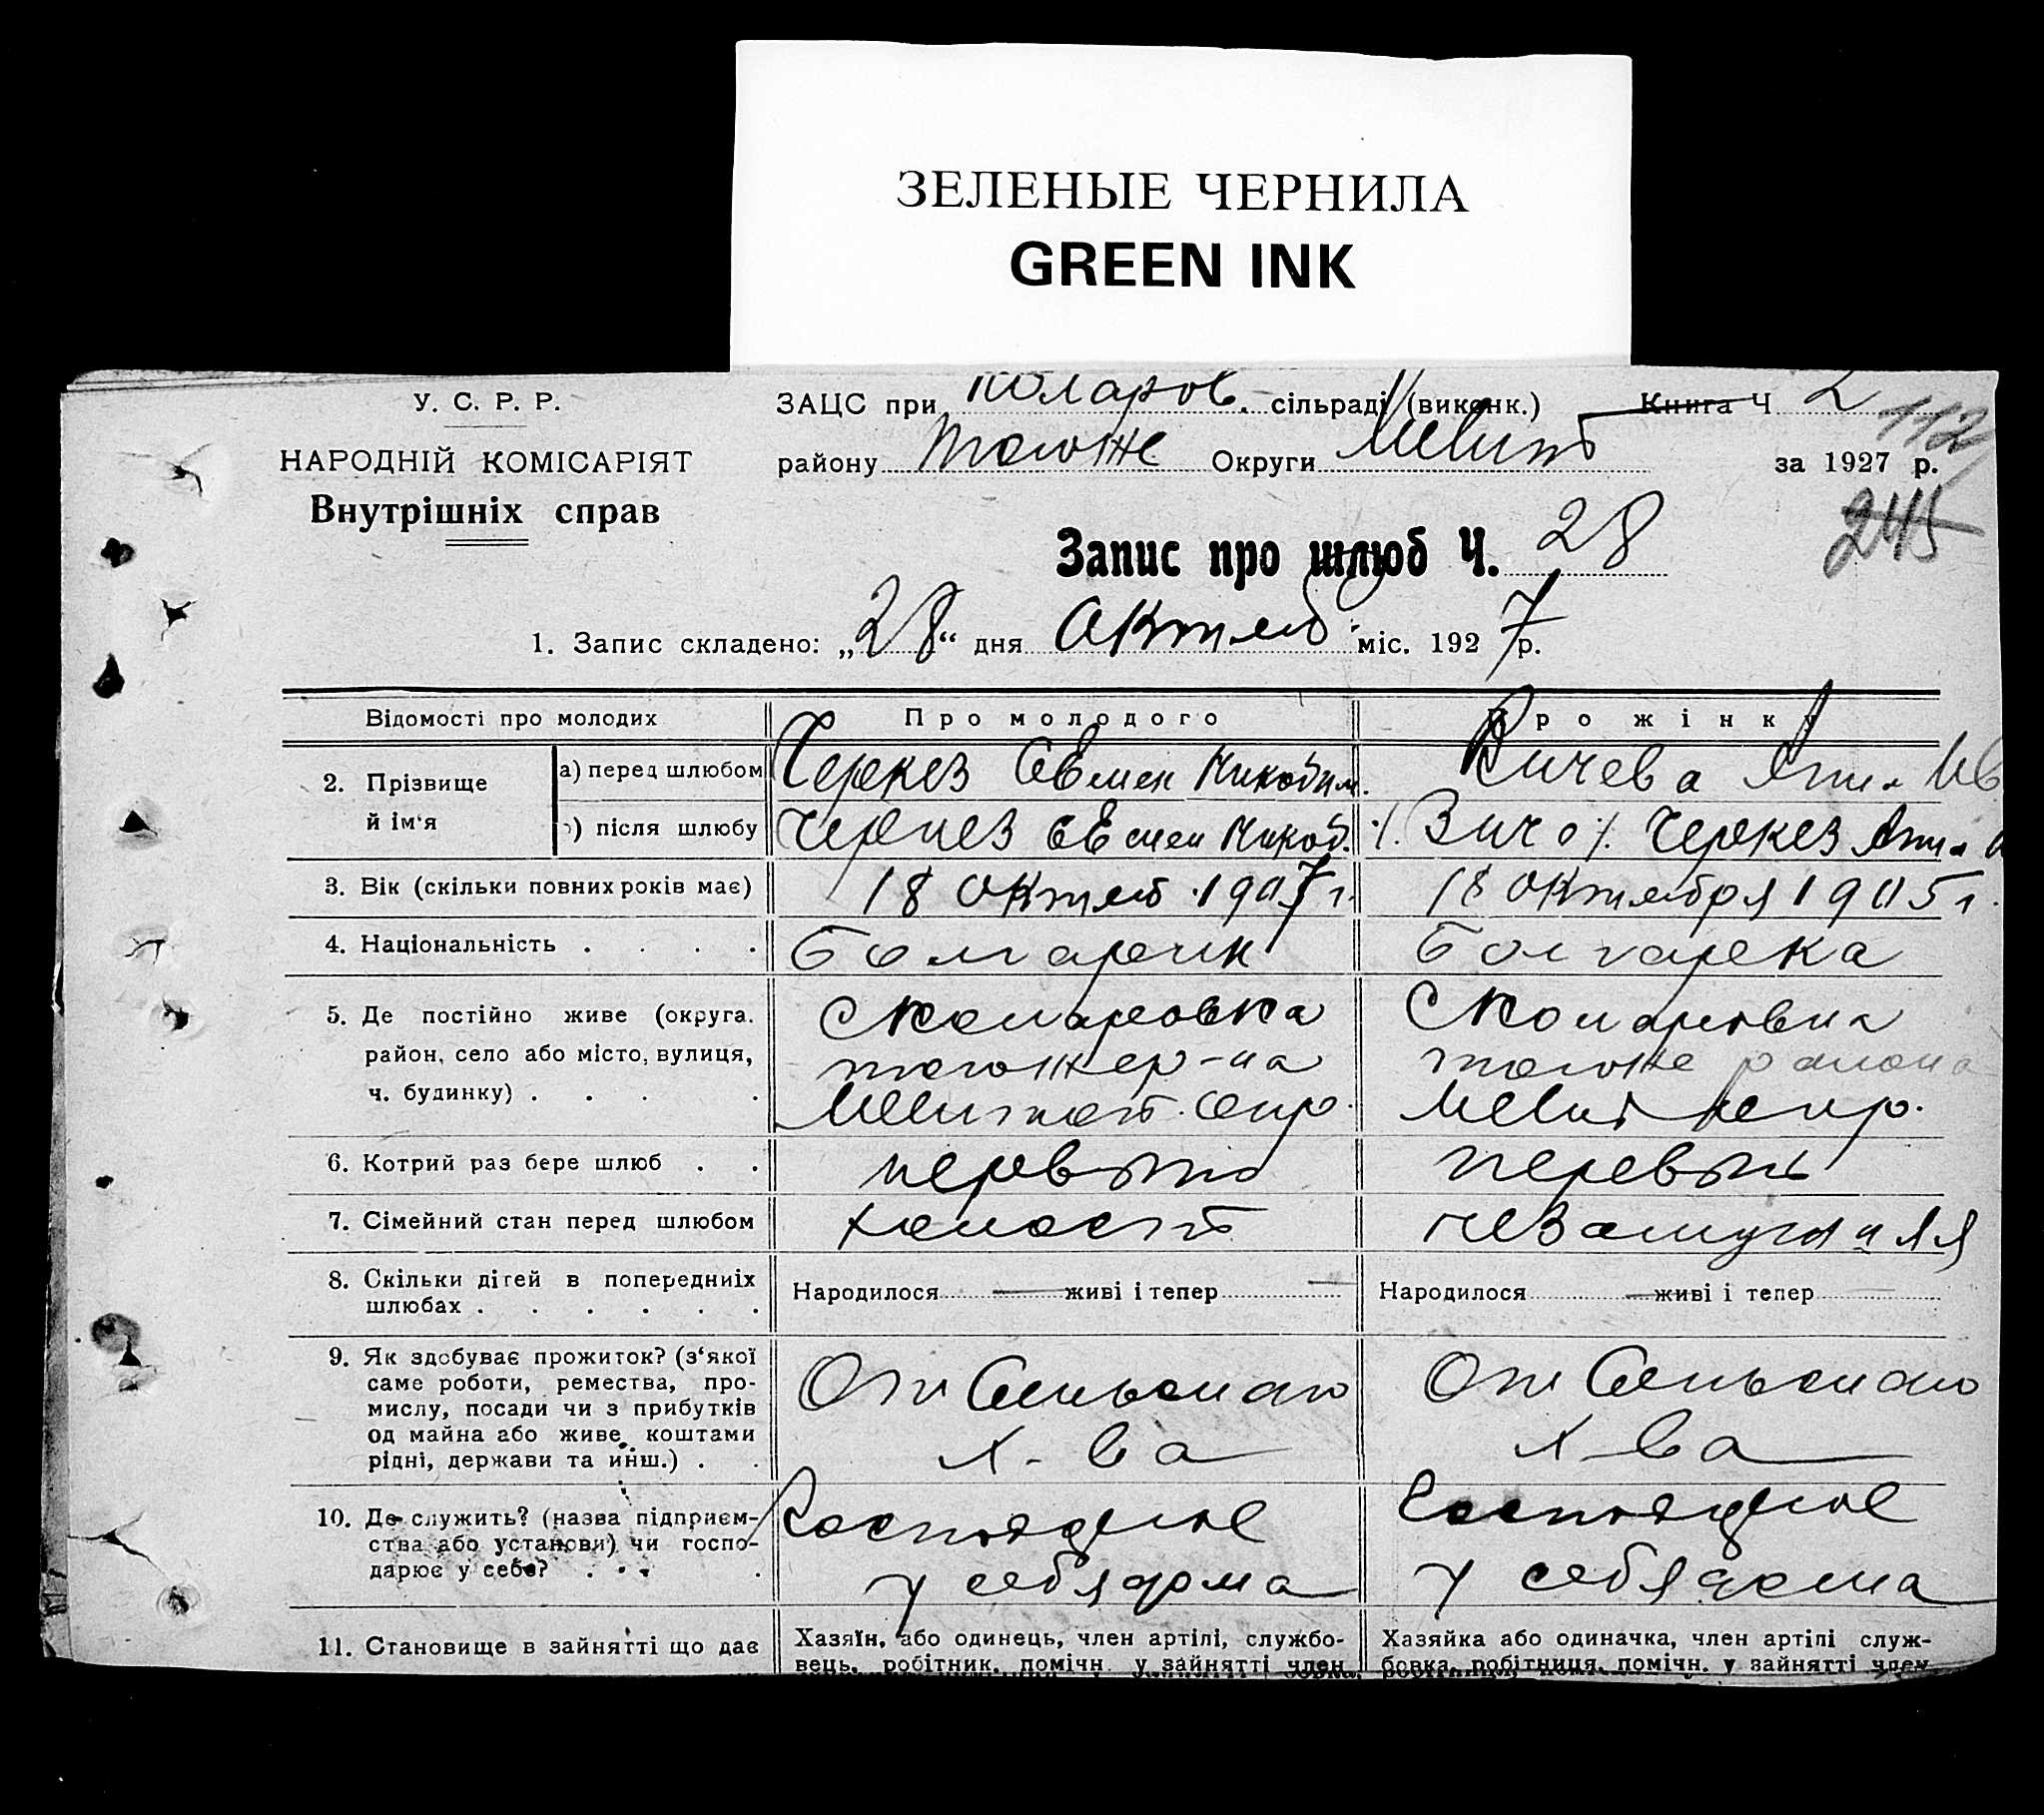 ЗЕЛЕНЫЕ ЧЕРНИЛА
GREEN INK
У. С. Р. Р.
НАРОДНІЙ КОМІСАРІЯТ
Внутрішніх справ
ЗАЦС при Коларов. сільраді (виконк.) Книга Ч 2
112
району тогоже Округи Мелит за 1927 р.
245
Запис про шлюб Ч. 28
1. Запис складено: „28“ дня Октяб міс. 1927 р.
Відомості про молодих Про молодого Про жінку
2. Прізвище й ім‘я
а) перед шлюбом Черкез Евмен Никодим.
після шлюбу Черкез Евмен Никод. Черкез
3. Вік (скільки повних років має) 18 Октяб. 1907 г. 18 Октября 1905 г.
4. Національність . . . . Болгарин Болгарка
5. Де постійно живе (округа.
район, село або місто, вулиця,
ч. будинку) . . . .
С Коларовка
тогоже р-на
Мелитоп. Окр.
С Коларовка
тогоже района
Мелит Окр.
6. Котрий раз бере шлюб . . первый первый
7. Сімейний стан перед шлюбом холост незамужняя
8. Скільки дітей в попередниіх
шлюбах . . . . . .
Народилося — живі і тепер —
Народилося — живі і тепер
9. Як здобуває прожиток? (з‘якої
саме роботи, ремества, про-
мислу, посади чи з прибутків
од майна або живе коштами
рідні, держави та инш.) . .
От Сельскаго
х-ва
От Сельскаго
х-ва
10. Де служить? (назва підприєм-
ства або установи) чи госпо-
дарює у себе? . . . .
у себя дома
у себя дома
11. Становище в зайнятті що дає
Хазяїн, або одинець, член артілі, службо-
вець, робітник, помічн. у зайнятті член
Хазяйка або одиначка, член артілі служ-
бовка, робітниця, помічн. у зайнятті член